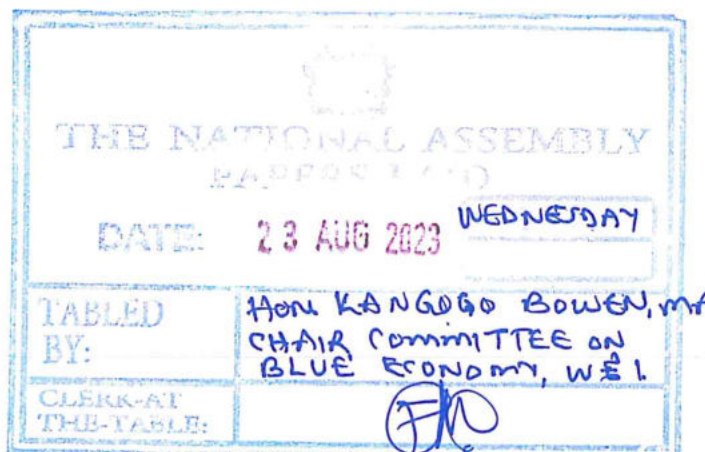 THE NATIONAL ASSEMBLY
PAPERS LAID
DATE: 23 AUG 2023 WEDNESDAY
TABLED BY: HON. KANGOGO BOWEN, MP
CHAIR COMMITTEE ON
BLUE ECONOMY, W & I.
CLERK-AT THE-TABLE: